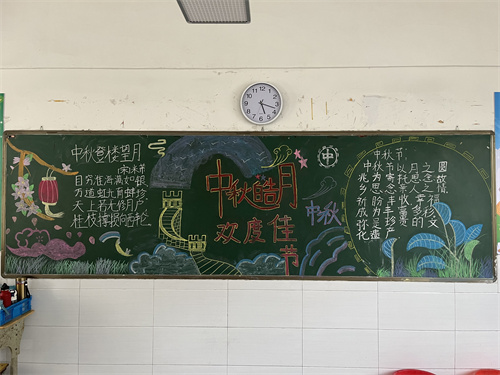 中秋登楼望月
(宋)米芾
目穷淮海满如银
万道虹光育蚌珍
天上若无修月户
桂枝撑损向西轮
中秋皓月
欢度佳
节
中秋
中
中秋节:以月之圆
兆 为寄托思念故
乡思念亲人之情
祈盼丰收幸福
成为丰富多
弥 的文
化